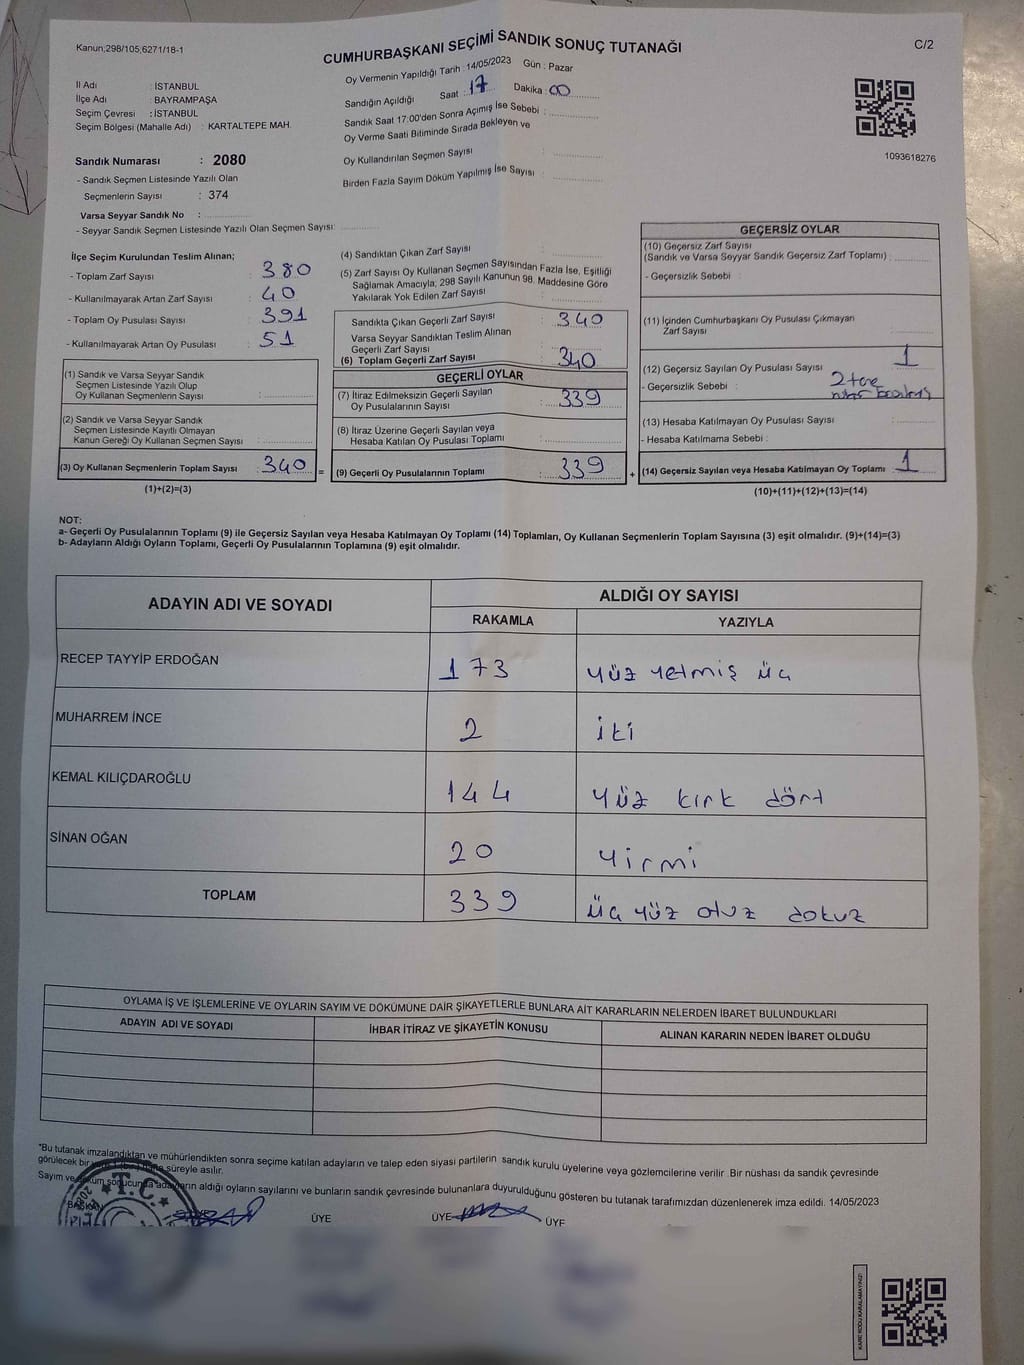 Kanun;298/105,6271/18-1
CUMHURBAŞKANI SEÇİMİ SANDIK SONUÇ TUTANAĞI
C/2
Oy Vermenin Yapıldığı Tarih : 14/05/2023 Gün : Pazar
İl Adı : İSTANBUL
İlçe Adı : BAYRAMPAŞA
Seçim Çevresi : İSTANBUL
Seçim Bölgesi (Mahalle Adı) : KARTALTEPE MAH.
Sandığın Açıldığı Saat : 17 Dakika : 00
Sandık Saat 17:00'den Sonra Açımış İse Sebebi :
Oy Verme Saati Bitiminde Sırada Bekleyen ve
Oy Kullandırılan Seçmen Sayısı :
Birden Fazla Sayım Döküm Yapılmış İse Sayısı :
1093618276
Sandık Numarası : 2080
- Sandık Seçmen Listesinde Yazılı Olan
Seçmenlerin Sayısı : 374
Varsa Seyyar Sandık No :
- Seyyar Sandık Seçmen Listesinde Yazılı Olan Seçmen Sayısı:
İlçe Seçim Kurulundan Teslim Alınan;
- Toplam Zarf Sayısı : 380
- Kullanılmayarak Artan Zarf Sayısı : 40
- Toplam Oy Pusulası Sayısı : 391
- Kullanılmayarak Artan Oy Pusulası : 51
(1) Sandık ve Varsa Seyyar Sandık
Seçmen Listesinde Yazılı Olup
Oy Kullanan Seçmenlerin Sayısı :
(2) Sandık ve Varsa Seyyar Sandık
Seçmen Listesinde Kayıtlı Olmayan
Kanun Gereği Oy Kullanan Seçmen Sayısı :
(3) Oy Kullanan Seçmenlerin Toplam Sayısı : 340 =
(1)+(2)=(3)
(4) Sandıktan Çıkan Zarf Sayısı :
(5) Zarf Sayısı Oy Kullanan Seçmen Sayısından Fazla İse, Eşitliği
Sağlamak Amacıyla; 298 Sayılı Kanunun 98. Maddesine Göre
Yakılarak Yok Edilen Zarf Sayısı :
Sandıkta Çıkan Geçerli Zarf Sayısı : 340
Varsa Seyyar Sandıktan Teslim Alınan
Geçerli Zarf Sayısı :
(6) Toplam Geçerli Zarf Sayısı : 340
GEÇERLİ OYLAR
(7) İtiraz Edilmeksizin Geçerli Sayılan
Oy Pusulalarının Sayısı : 339
(8) İtiraz Üzerine Geçerli Sayılan veya
Hesaba Katılan Oy Pusulası Toplamı :
(9) Geçerli Oy Pusulalarının Toplamı : 339 +
GEÇERSİZ OYLAR
(10) Geçersiz Zarf Sayısı
(Sandık ve Varsa Seyyar Sandık Geçersiz Zarf Toplamı) :
- Geçersizlik Sebebi :
(11) İçinden Cumhurbaşkanı Oy Pusulası Çıkmayan
Zarf Sayısı :
(12) Geçersiz Sayılan Oy Pusulası Sayısı : 1
- Geçersizlik Sebebi : 2 tane
(13) Hesaba Katılmayan Oy Pusulası Sayısı :
- Hesaba Katılmama Sebebi :
(14) Geçersiz Sayılan veya Hesaba Katılmayan Oy Toplamı : 1
(10)+(11)+(12)+(13)=(14)
NOT:
a- Geçerli Oy Pusulalarının Toplamı (9) ile Geçersiz Sayılan veya Hesaba Katılmayan Oy Toplamı (14) Toplamları, Oy Kullanan Seçmenlerin Toplam Sayısına (3) eşit olmalıdır. (9)+(14)=(3)
b- Adayların Aldığı Oyların Toplamı, Geçerli Oy Pusulalarının Toplamına (9) eşit olmalıdır.
ADAYIN ADI VE SOYADI
ALDIĞI OY SAYISI
RAKAMLA YAZIYLA
RECEP TAYYİP ERDOĞAN 173 yüz yetmiş üç
MUHARREM İNCE 2 iki
KEMAL KILIÇDAROĞLU 144 yüz kırk dört
SİNAN OĞAN 20 yirmi
TOPLAM 339 üç yüz otuz dokuz
OYLAMA İŞ VE İŞLEMLERİNE VE OYLARIN SAYIM VE DÖKÜMÜNE DAİR ŞİKAYETLERLE BUNLARA AİT KARARLARIN NELERDEN İBARET BULUNDUKLARI
ADAYIN ADI VE SOYADI İHBAR İTİRAZ VE ŞİKAYETİN KONUSU ALINAN KARARIN NEDEN İBARET OLDUĞU
*Bu tutanak imzalandıktan ve mühürlendikten sonra seçime katılan adayların ve talep eden siyasi partilerin sandık kurulu üyelerine veya gözlemcilerine verilir. Bir nüshası da sandık çevresinde
görülecek bir süreyle asılır.
Sayım ve döküm sonucunda adayların aldığı oyların sayılarını ve bunların sandık çevresinde bulunanlara duyurulduğunu gösteren bu tutanak tarafımızdan düzenlenerek imza edildi. 14/05/2023
T.C.
BAŞKAN ÜYE ÜYE ÜYE